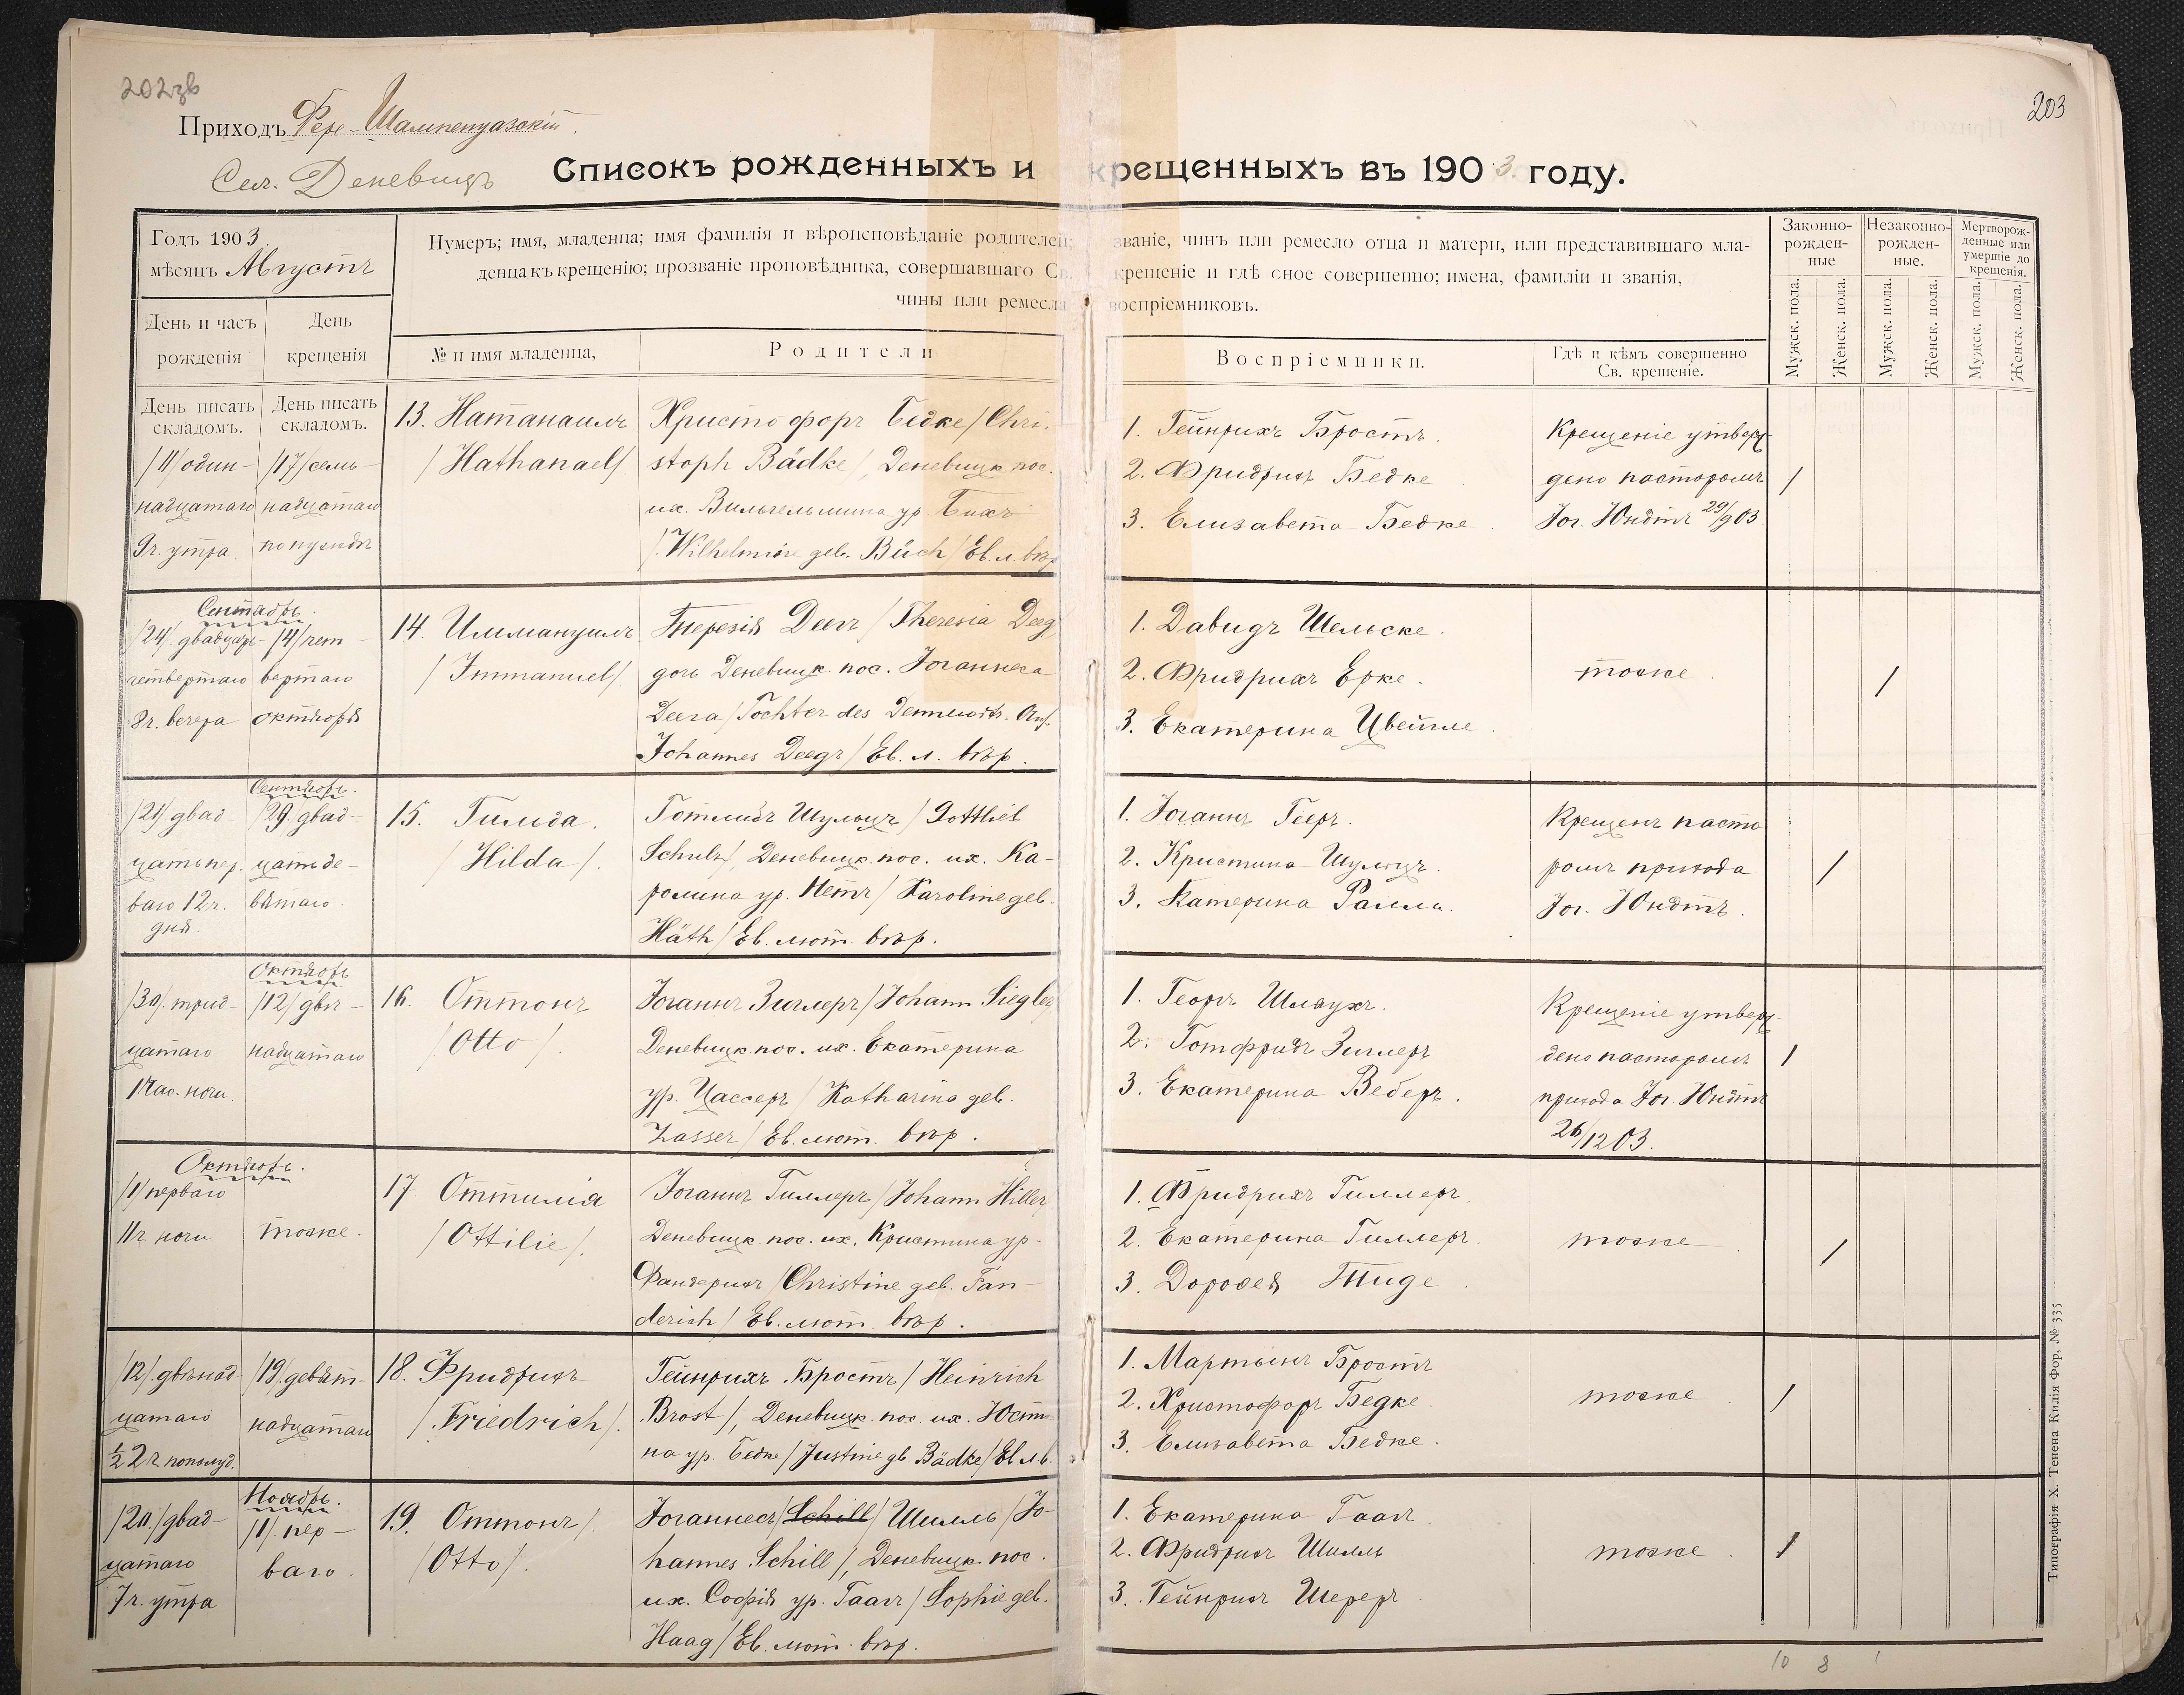 202зв
203
Приходъ Фере-Шампенуазскій.
Сел. Деневицъ
Списокъ рожденныхъ и крещенныхъ въ 1903. году.
Годъ 1903.
мѣсяцъ Августъ
День и часъ рожденія
День крещенія
Нумеръ; имя, младенца; имя фамилія и вѣроисповѣданіе родителей; званіе, чинъ или ремесло отца и матери, или представившаго мла-
денца къ крещенію; прозваніе проповѣдника, совершавшаго Св. крещеніе и гдѣ оное совершенно; имена, фамиліи и званія,
чины или ремесла воспріемниковъ.
№ и имя младенца,
Родители
Воспріемники.
Гдѣ и кѣмъ совершенно
Св. крешеніе.
Законно-
рожден-
ные
Незаконно-
рожден-
ные.
Мертворож-
денные или
умершіе до
крешенія.
Мужск. пола.
Женск. пола.
Мужск. пола.
Женск. пола.
Мужск. пола.
Женск. пола.
День писать
складомъ.
День писать
складомъ.
/11/ один-
надцатаго
9 ч. утра.
/17/ семь-
надцатаго
13. Натанаилъ
/Nathanael/
Христофоръ Бедке /Chri-
stoph Bädke/, Деневицк. пос.
их. Вильгельмина ур. Бихъ
/Wilhelmine geb. Büch/ Ев. л. вѣр.
1. Гейнрихъ Бростъ.
2. Фридрихъ Бедке.
3. Елизавета Бедке.
Крещеніе утверж-
дено пасторомъ
Іог. Юндтъ 29/9 03
/
Сентябрь.
/24/ двадцать
четвертаго
8 ч. вечера
/4/ чет-
вертаго
октября
14. Иммануилъ
/Immanuel/
Терезія Деегъ /Theresia Deeg/
дочь Деневицк. пос. Іоганнеса
Деега /Tochter des Dennewitz. Ans.
Johannes Deeg/ Ев. л. вѣр.
1. Давидъ Шельске.
2. Фридрихъ Ерке.
3. Екатерина Цвейгле.
тоже.
/
Сентябрь.
/21/ двад-
цать пер-
ваго 12 ч.
дня.
/29/ двад-
цать де-
вятаго.
15. Гильда.
/Hilda/.
Готлибъ Шульцъ /Gottlieb
Schulz/, Деневицк. пос. их. Ка-
ролина ур. Нетъ /Karoline geb.
Häth/ Ев. лют. вѣр.
1. Іоганнъ Гееръ.
2. Кристина Шульцъ.
3. Катерина Рамль.
Крещенъ пасто-
ромъ прихода
Іог. Юндтъ.
/
Октябрь
/30/ трид-
цатаго
1 час. ночи.
/12/ двѣ-
надцатаго
16. Оттонъ
/Otto/.
Іоганнъ Зиглеръ /Johann Siegler/
Деневицк. пос. их. Екатерина
ур. Цассеръ /Katharina geb.
Zasser/ Ев. лют. вѣр.
1. Георгъ Шлаухъ.
2. Готфридъ Зиглеръ
3. Екатерина Веберъ.
Крещеніе утверж-
дено пасторомъ
прихода Іог. Юндтъ
26/12 03.
/
Октябрь.
/1/ перваго
11 ч. ночи
тоже.
17 Оттилія
/Ottilie/.
Іоганнъ Гиллеръ /Johann Hiller/
Деневицк. пос. их. Кристина ур.
Фандерихъ /Christine geb. Fan-
derich/ Ев. лют. вѣр.
1. Фридрихъ Гиллеръ.
2. Екатерина Гиллеръ.
3. Доротея Тиде.
тоже.
/
/12/ двѣнад-
цатаго
½2 ч. пополуд.
/19/ девят-
надцатаго
18. Фридрихъ
/Friedrich/.
Гейнрихъ Бростъ /Heinrich
Brost/, Деневицк. пос. их. Юсти-
на ур. Бедке /Justine gb. Bädke/ Ев. л. в.
1. Мартынъ Бростъ
2. Христофоръ Бедке
3. Елизавета Бедке.
тоже
/
Ноябрь.
/20/ двад-
цатаго
7 ч. утра
/1/ пер-
ваго.
19. Оттонъ/.
/Otto/.
Іоганнесъ /Schill/ Шилль /Jo-
hannes Schill/, Деневицк. пос.
их. Софія ур. Гаагъ /Sophie geb.
Haag/ Ев. лют. вѣр.
1. Екатерина Гаагъ
2. Фридрихъ Шилль
3. Гейнрихъ Шереръ
тоже.
/
10 8 1
Типографія Х. Тенена Килія Фор, № 335